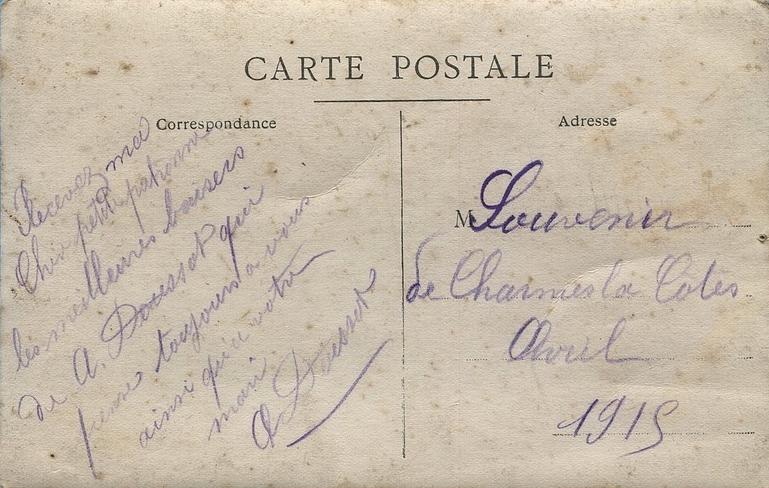 CARTE POSTALE
Correspondance
Recevez ma
Cher petit patronne
les meilleures baisers
de A. Doussot qui
pense toujours a vous
ainsi qu'a votre
mari
A Doussot
Adresse
M Souvenir
de Charmes la Côtes
Avril
1915